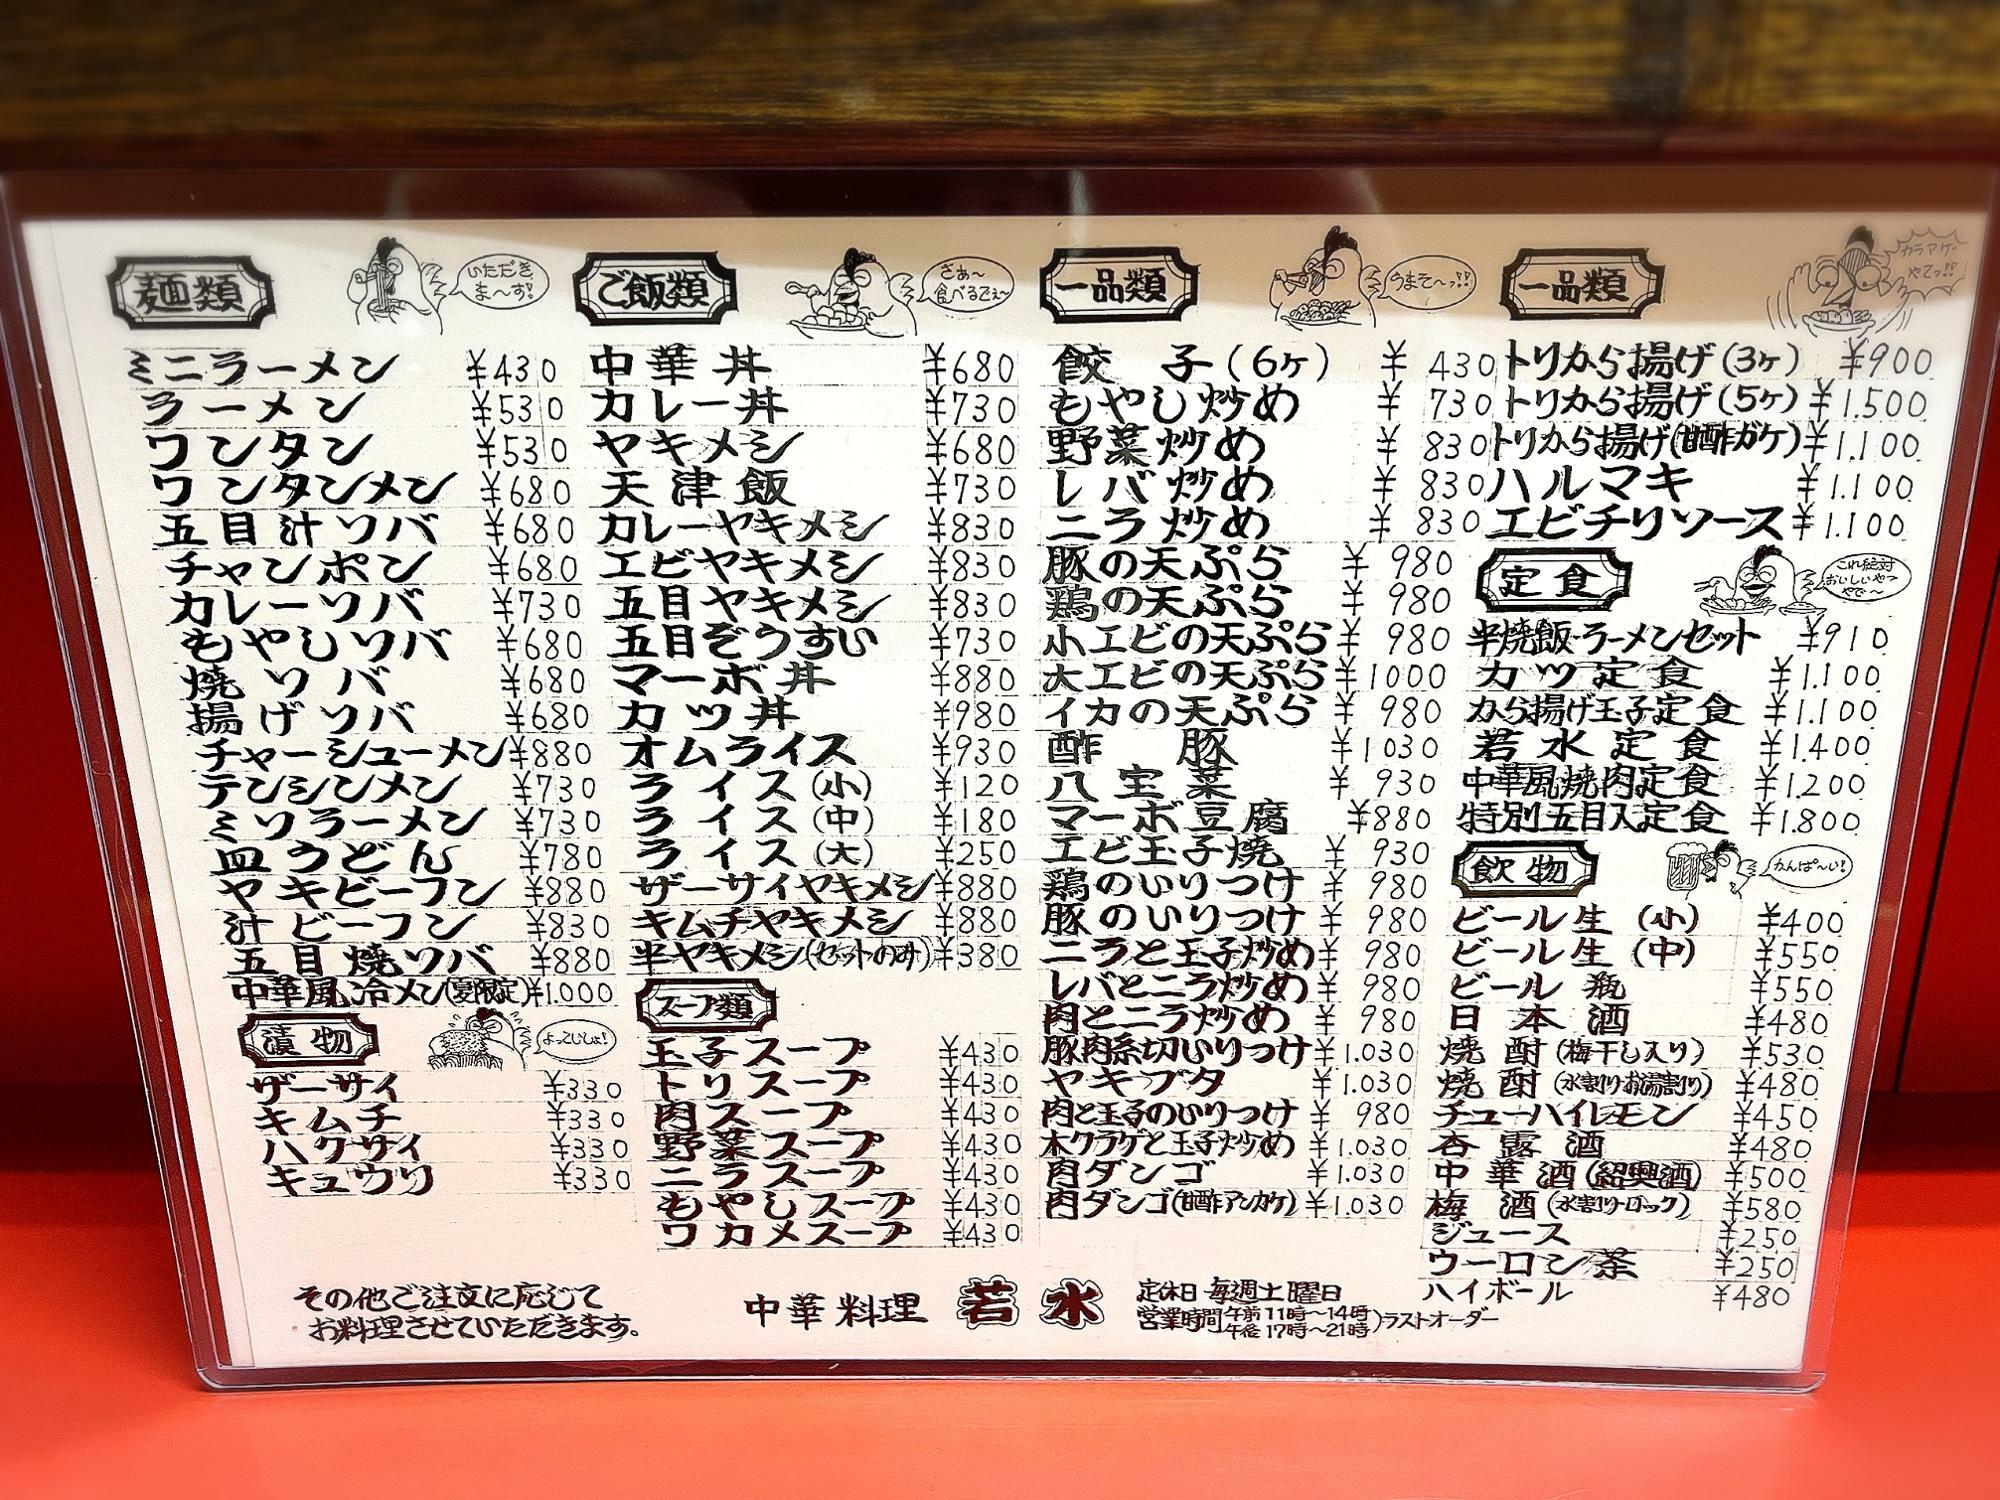 麺類
いただきま〜す!
ミニラーメン ¥430
ラーメン ¥530
ワンタン ¥530
ワンタンメン ¥680
五目汁ソバ ¥680
チャンポン ¥680
カレーソバ ¥730
もやしソバ ¥680
焼ソバ ¥680
揚げソバ ¥680
チャーシューメン ¥880
テンシンメン ¥730
ミソラーメン ¥730
皿うどん ¥780
ヤキビーフン ¥880
汁ビーフン ¥830
五目焼ソバ ¥880
中華風冷メン(夏限定) ¥1.000
漬物
よっこいしょ!
ザーサイ ¥330
キムチ ¥330
ハクサイ ¥330
キュウリ ¥330
ご飯類
さぁ〜食べるでぇ〜
中華丼 ¥680
カレー丼 ¥730
ヤキメシ ¥680
天津飯 ¥730
カレーヤキメシ ¥830
エビヤキメシ ¥830
五目ヤキメシ ¥830
五目ぞうすい ¥730
マーボ丼 ¥880
カツ丼 ¥980
オムライス ¥930
ライス(小) ¥120
ライス(中) ¥180
ライス(大) ¥250
ザーサイヤキメシ ¥880
キムチヤキメシ ¥880
半ヤキメシ(セットのみ) ¥380
スープ類
玉子スープ ¥430
トリスープ ¥430
肉スープ ¥430
野菜スープ ¥430
ニラスープ ¥430
もやしスープ ¥430
ワカメスープ ¥430
一品類
うまそ〜っ!!
餃子(6ヶ) ¥430
もやし炒め ¥730
野菜炒め ¥830
レバ炒め ¥830
ニラ炒め ¥830
豚の天ぷら ¥980
鶏の天ぷら ¥980
小エビの天ぷら ¥980
大エビの天ぷら ¥1000
イカの天ぷら ¥980
酢豚 ¥1030
八宝菜 ¥930
マーボ豆腐 ¥880
エビ玉子焼 ¥930
鶏のいりつけ ¥980
豚のいりつけ ¥980
ニラと玉子炒め ¥980
レバとニラ炒め ¥980
肉とニラ炒め ¥980
豚肉糸切いりつけ ¥1.030
ヤキブタ ¥1.030
肉と玉子のいりつけ ¥980
木クラゲと玉子炒め ¥1.030
肉ダンゴ ¥1.030
肉ダンゴ(甘酢アンカケ) ¥1.030
一品類
カラアゲやでっ!!
トリから揚げ(3ヶ) ¥900
トリから揚げ(5ヶ) ¥1.500
トリから揚げ(甘酢ガケ) ¥1.100
ハルマキ ¥1.100
エビチリソース ¥1.100
定食
これ絶対おいしいやつやで〜
半焼飯・ラーメンセット ¥910
カツ定食 ¥1.100
から揚げ玉子定食 ¥1.100
若水定食 ¥1.400
中華風焼肉定食 ¥1.200
特別五目入定食 ¥1.800
飲物
かんぱ〜い!
ビール生(小) ¥400
ビール生(中) ¥550
ビール瓶 ¥550
日本酒 ¥480
焼酎(梅干し入り) ¥530
焼酎(水割り・お湯割り) ¥480
チューハイレモン ¥450
杏露酒 ¥480
中華酒(紹興酒) ¥500
梅酒(水割り・ロック) ¥580
ジュース ¥250
ウーロン茶 ¥250
ハイボール ¥480
その他ご注文に応じて
お料理させていただきます。
中華料理 若水
定休日 毎週土曜日
営業時間 午前11時〜14時
午后17時〜21時)ラストオーダー